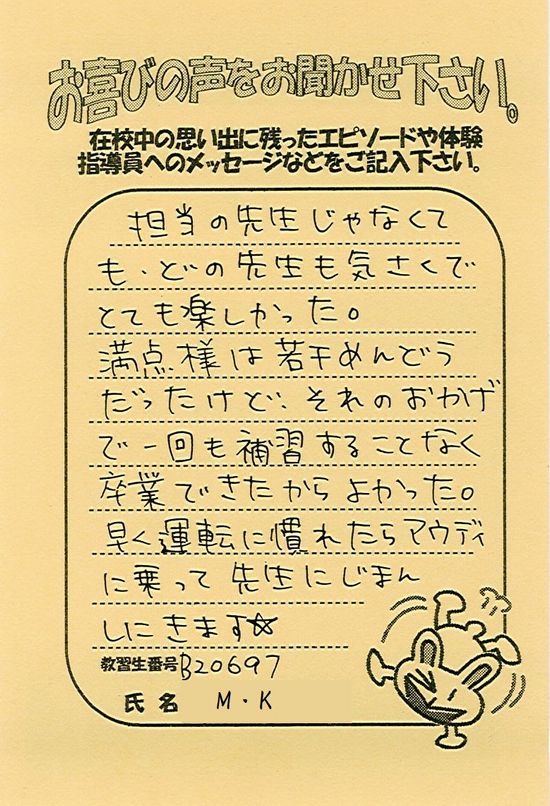 お喜びの声をお聞かせ下さい。
在校中の思い出に残ったエピソードや体験
指導員へのメッセージなどをご記入下さい。
担当の先生じゃなくて
も、どの先生も気さくで
とても楽しかった。
満点様は若干めんどう
だったけど、それのおかげ
で一回も補習することなく
卒業できたからよかった。
早く運転に慣れたらアウディ
に乗って先生にじまん
しにきます☆
教習生番号B20697
氏名 M・K